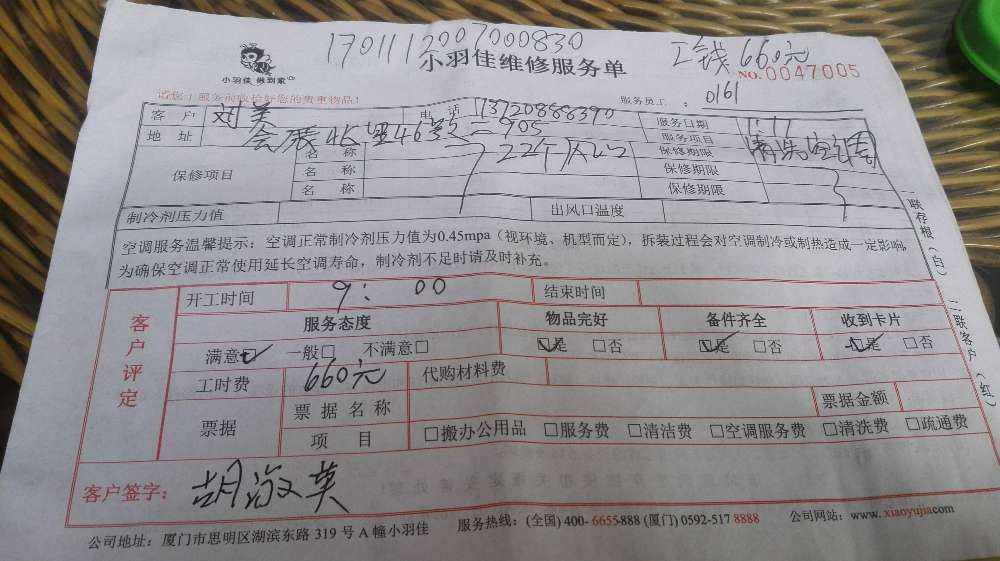 1701112007000830
工钱660元
小羽佳 做到家
小羽佳维修服务单
NO. 0047005
服务员工：0161
客户 刘美 电话 13720888390 服务日期 1.17
地址 会展北里46号 905 服务项目 清洗
保修项目 名称 保修期限
名称 保修期限
名称 保修期限
制冷剂压力值 出风口温度
空调服务温馨提示：空调正常制冷剂压力值为0.45mpa（视环境、机型而定），拆装过程会对空调制冷或制热造成一定影响，
为确保空调正常使用延长空调寿命，制冷剂不足时请及时补充。
一联存根（白） 二联客户（红）
客户评定
开工时间 9：00 结束时间
服务态度 物品完好 备件齐全 收到卡片
满意☑ 一般□ 不满意□ ☑是 □否 ☑是 □否 ☑是 □否
工时费 660元 代购材料费
票据 票据名称 票据金额
项目 □搬办公用品 □服务费 □清洁费 □空调服务费 □清洗费 □疏通费
客户签字：胡淑英
公司地址：厦门市思明区湖滨东路 319 号 A 幢小羽佳 服务热线：(全国) 400- 6655-888 (厦门) 0592-517 8888 公司网站：www. xiaoyujia.com